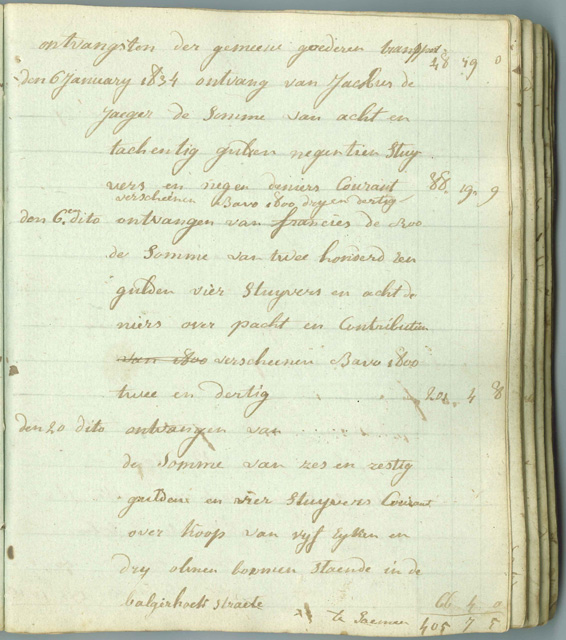 ontvangsten der gemeene goederen transport 48 19 0
den 6 January 1834 ontvang van Jacobus de
Jaeger de Somme van acht en
tachentig gulden negentien Stuy
vers en negen deniers Courant 88 19 9
verschenen Bavo 1800 dry en dertig
den 6en dito ontvangen van francies de Boo
de Somme van twee honderd een
gulden vier Stuyvers en acht de
niers over pacht en Contributien
van 1800 verscheenen Bavo 1800
twee en dertig 201 4 8
den 20 dito ontvangen van ......
de Somme van zes en zestig
guldens en vier Stuyvers Courant
over koop van vyf Eyken en
dry olmen boomen staende in de
balgerhoek straete 66 4 0
te Saemen 405 7 5